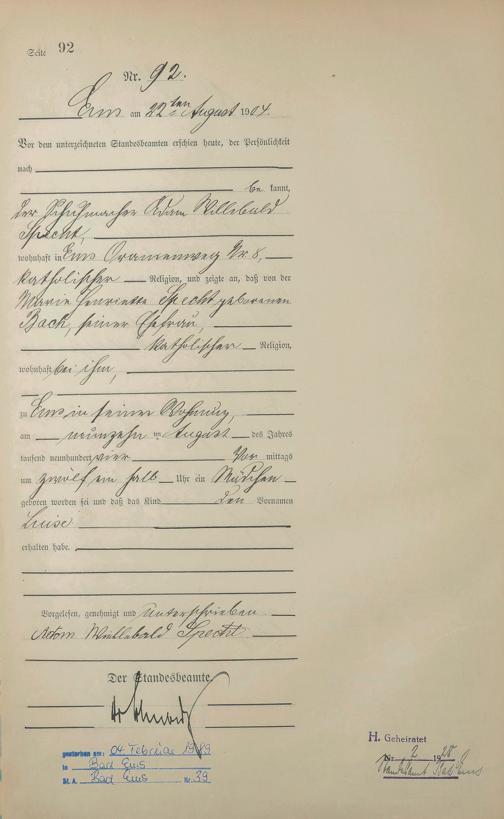 Seite 92
Nr. 92.
Ems am 22ten August 1904.
Vor dem unterzeichneten Standesbeamten erschien heute, der Persönlichkeit
nach
be kannt,
der Schuhmacher Adam Willibald
Specht,
wohnhaft in Ems Oranienweg Nr. 8,
katholischer Religion, und zeigte an, daß von der
Marie Henriette Specht geborenen
Bach, seiner Ehefrau,
katholischer Religion,
wohnhaft bei ihm,
zu Ems in seiner Wohnung,
am neunzehnten August des Jahres
tausend neunhundert vier Vor mittags
um zwölf ein halb Uhr ein Mädchen
geboren worden sei und daß das Kind den Vornamen
Luise
erhalten habe.
Vorgelesen, genehmigt und unterschrieben
Adam Willibald Specht
Der Standesbeamte.
gestorben am: 04. Februar 1989
in Bad Ems
St. A. Bad Ems Nr. 39
H. Geheiratet
Nr. 2 1928
Standesamt Bad Ems